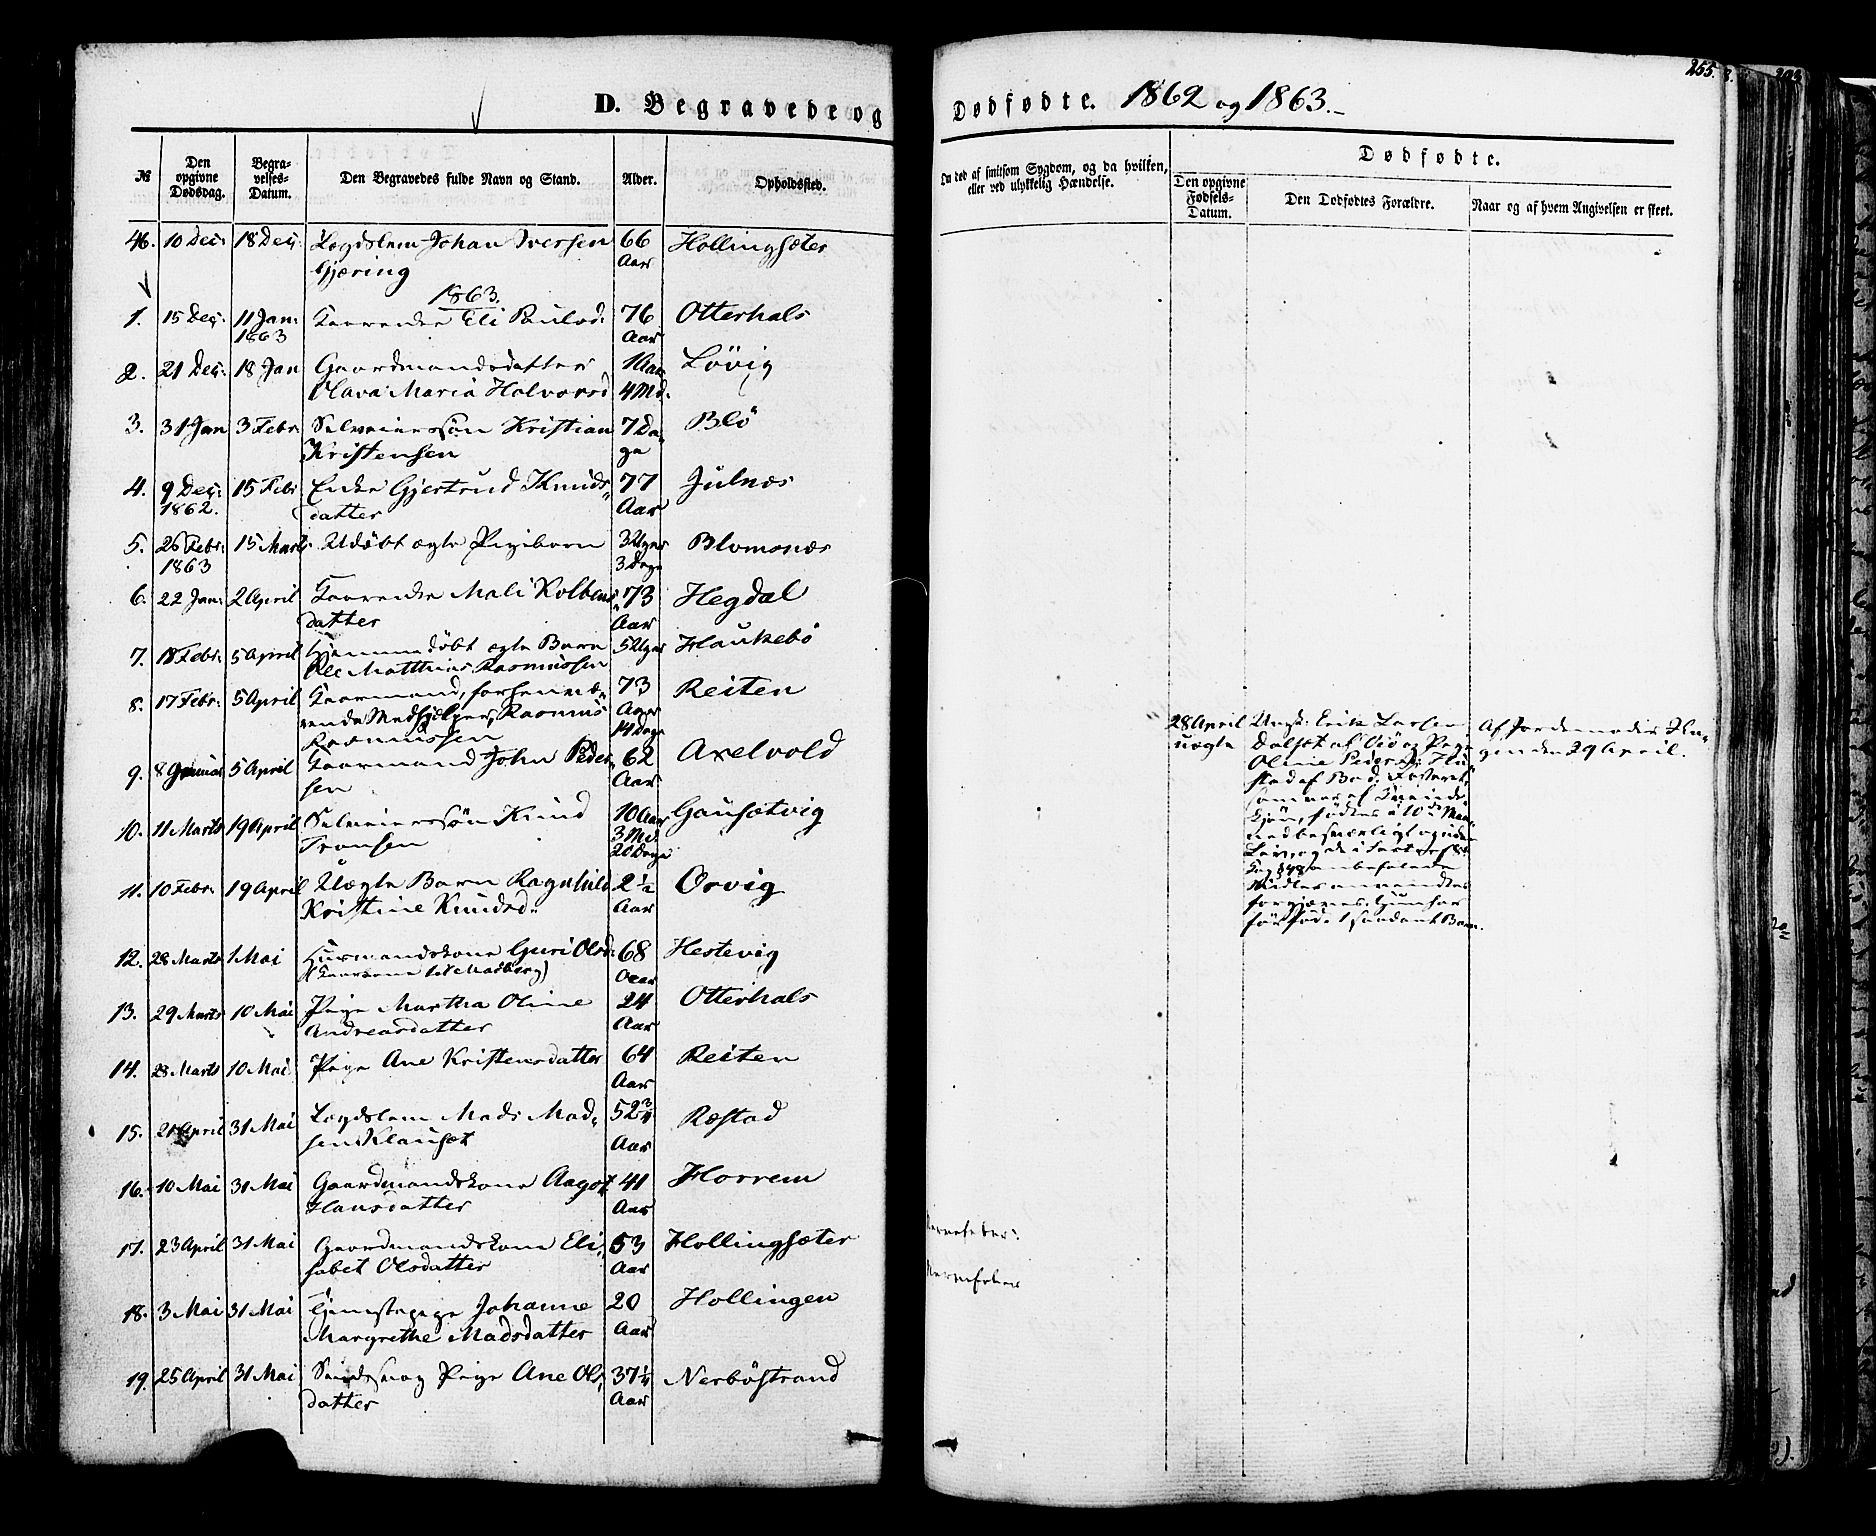 255.
D. Begravede og Dødfødte. 1862 og 1863.
№
Den opgivne Dødsdag.
Begravelses-Datum.
Den Begravedes fulde Navn og Stand.
Alder.
Opholdssted.
Om død af smitsom Sygdom, og da hvilken, eller ved ulykkelig Hændelse.
Dødfødte.
Den opgivne Fødsels-Datum.
Den Dødfødtes Forældre.
Naar og af hvem Angivelsen er skeet.
46. 10 Dec: 18 Dec: Lægdslem Johan Iversen 66 Hollingsæter
Gjæring Aar
1863.
1. 15 Dec: 11 Jan: Kaarenke Eli Paulsd: 76 Otterhals
1863 Aar
2. 21 Dec: 18 Jan Gaardmandsdatter 1 Aar Lövig
Olava Maria Halvorsd 4 Md.
3. 31 Jan 3 Febr: Selveierssön Kristian 7 Da- Blö
Kristensen ge
4. 9 Dec: 15 Febr Enke Gjertrud Knuds- 77 Julnæs
1862. datter Aar
5. 26 Febr: 15 Marts Udöbt ægte Pigebarn 3 Uger Blomsnæs
1863 3 Dage
6. 22 Jan: 2 April Kaarenke Mali Kolbens- 73 Hegdal
datter Aar
7. 18 Febr: 5 April Hjemmedöbt ægte Barn 5 Uger Haukebö
Ole Matthias Rasmussen
8. 17 Febr: 5 April Kaarmand, forhenvæ- 73 Reiten
rende Medhjelper, Rasmus Aar
Rasmussen 14 Dage
9. 8 Januar 5 April Kaarmand John Peder- 62 Axelvold
sen Aar
10. 11 Marts 19 April Selveierssön Knud 10 Aar Gausetvig
Tronsen 3 Md.
20 Dage
11. 10 Febr: 19 April Uægte Barn Ragnhild 2½ Orvig
Kristine Knudsd: Aar
12. 28 Marts 1 Mai Huusmandskone Guri Olsd: 68 Hestevig
Aar
13. 29 Marts 10 Mai Pige Martha Oline 24 Otterhals
Andreasdatter Aar
14. 28 Marts 10 Mai Pige Ane Kristensdatter 64 Reiten
Aar
15. 21 April 31 Mai Lægdslem Mads Mad- 52¾ Ræstad
sen Klauset Aar
16. 10 Mai 31 Mai Gaardmandskone Aagot 41 Horrem
Hansdatter Aar
17. 23 April 31 Mai Gaardmandskone Eli- 53 Hollingsæter
sabet Olsdatter Aar
Nervefeber:
18. 3 Mai 31 Mai Tjenestepige Johanne 20 Hollingen
Margrethe Madsdatter Aar
Nervefeber
19. 25 April 31 Mai Sindssvag Pige Ane Ols- 37¼ Nerböstrand
datter Aar
28 April Ungk: Erik Larsen Af Jordemoder
uægte Dalset af og Pige den 29 April.
Oline Pedersd: